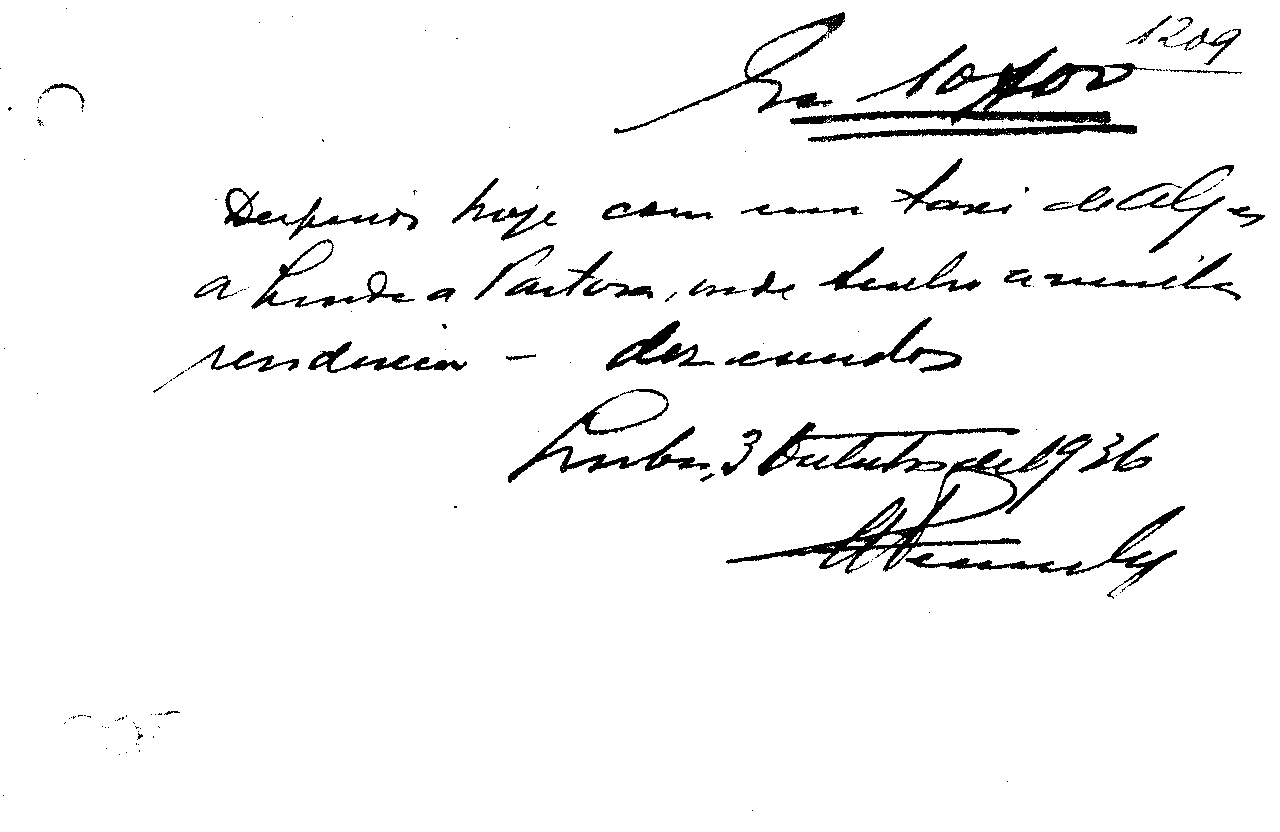 1209
Esc 10$00
Despesas hoje com um taxi de Algés
a Linda a Pastora, onde tenho a minha
residencia – dez escudos
Lisboa, 3 Outubro de 1936